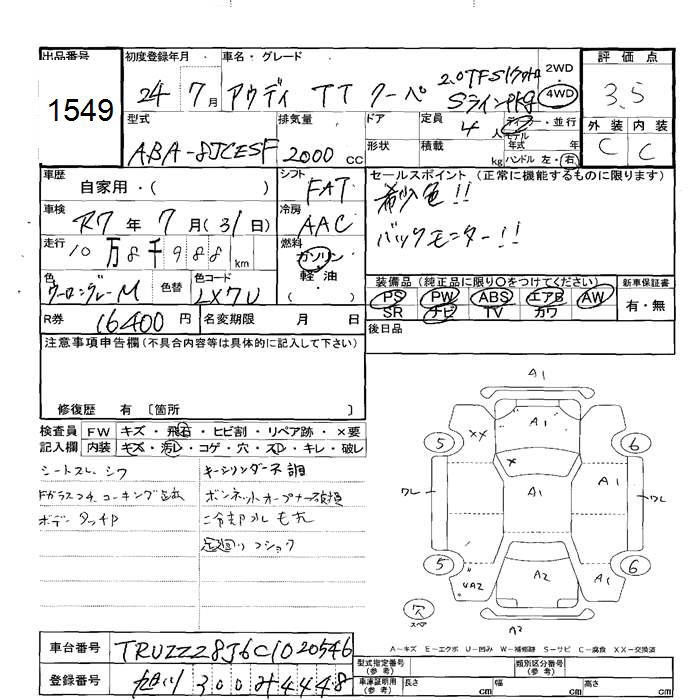 出品番号
1549
初度登録年月
24 7月
車名・グレード
アウディ TT クーペ 2.0TFSIクワトロ
SラインPKG
2WD・4WD
評価点
3.5
外装 内装
C C
型式
ABA-8JCESF
排気量
2000 cc
ドア
形状
定員
4 人
積載
kg
ディーラー・並行
モデル年式 年
ハンドル 左・右
車歴
自家用・( )
シフト
FAT
セールスポイント(正常に機能するものに限ります)
希少色!!
バックモニター!!
車検
R7年 7月(31日)
冷房
AAC
走行
10万8千988km
燃料
ガソリン
軽油
・( )
色
クーロングレーM
色替
色コード
LX7U
装備品(純正品に限り〇をつけてください)
PS PW ABS エアB AW
SR ナビ TV カワ
新車保証書
有・無
R券
16400円
名変期限 月 日
後日品
注意事項申告欄(不具合内容等は具体的に記入して下さい)
修復歴 有〔箇所 〕
検査員 FW キズ・飛石・ヒビ割・リペア跡・×要
記入欄 内装 キズ・汚レ・コゲ・穴・スレ・キレ・破レ
シートスレ、シワ
キーシリンダー不調
Fガラスフチ、コーキング
ボンネットオープナー破損
ボデータッチP
冷却水もれ
足廻りショック
A1
A1
XX
5
6
×
A1
A1
ワレ
ワレ
5
6
UA2
A2
A1
穴
スペア
A2
A-キズ E-エクボ U-凹み W-補修跡 S-サビ C-腐食 XX-交換済
車台番号
TRUZZZ8J6C1020546
登録番号
旭川 300 み 4448
型式指定番号(参考)
類別区分番号(参考)
車庫証明用(参考) 長さ cm 幅 cm 高さ cm